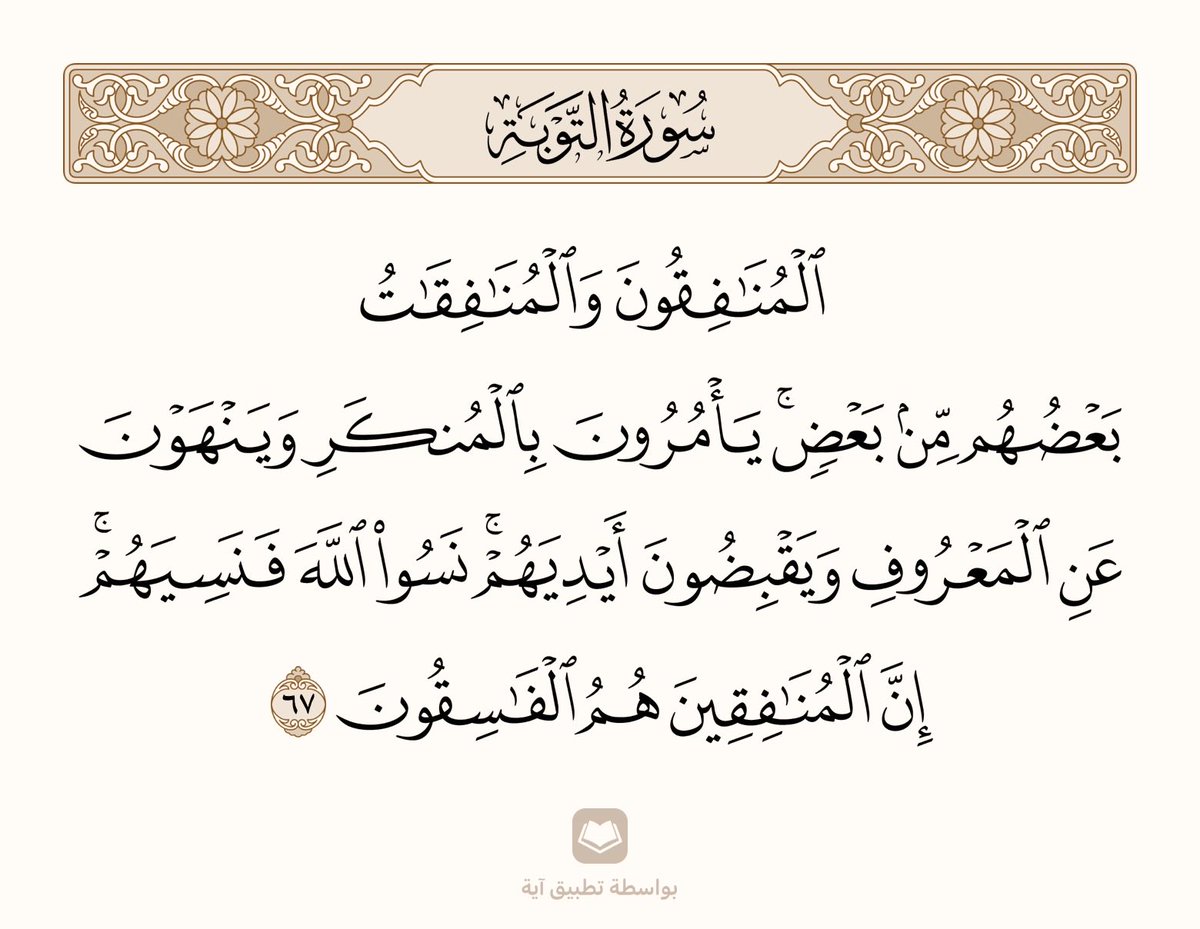 سُورَةُ التَّوْبَةِ
ٱلْمُنَٰفِقُونَ وَٱلْمُنَٰفِقَٰتُ
بَعْضُهُم مِّنۢ بَعْضٍۚ يَأْمُرُونَ بِٱلْمُنكَرِ وَيَنْهَوْنَ
عَنِ ٱلْمَعْرُوفِ وَيَقْبِضُونَ أَيْدِيَهُمْۚ نَسُوا۟ ٱللَّهَ فَنَسِيَهُمْۚ
إِنَّ ٱلْمُنَٰفِقِينَ هُمُ ٱلْفَٰسِقُونَ ٦٧
بواسطة تطبيق آية